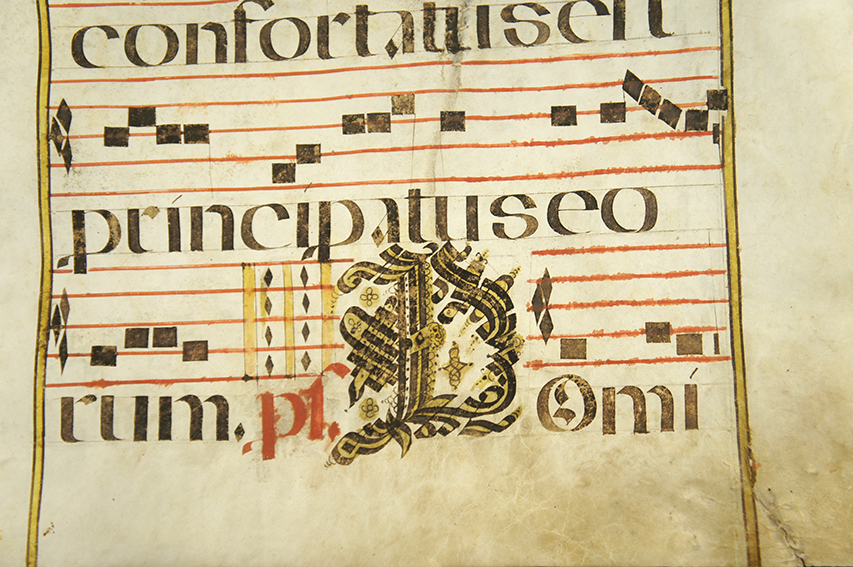 confortatus est
principatus eo
rum. ps. DOmi